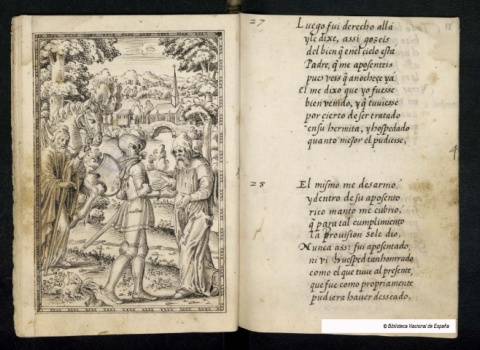 27
Luego fui derecho alla
y le dixe, assi gozeis
del bien q̃ en el çielo esta
Padre, q̃ me aposenteis
pues veis q̃ anocheçe ya
El me dixo que yo fuesse
bien venido, y q̃ tuuiesse
por çierto de ser tratado
en su hermita, y hospedado
quanto mejor el pudiesse,
28
El mismo me desarmo
y dentro de su aposento
rico manto me cubrio,
q̃ para tal cumplimiento
la prouision se le dio,
Nunca assi fui aposentado,
ni vi huesped tan honrrado
como el que tuue al presente,
que fue como propriamente
pudiera hauer desseado,
© Biblioteca Nacional de España